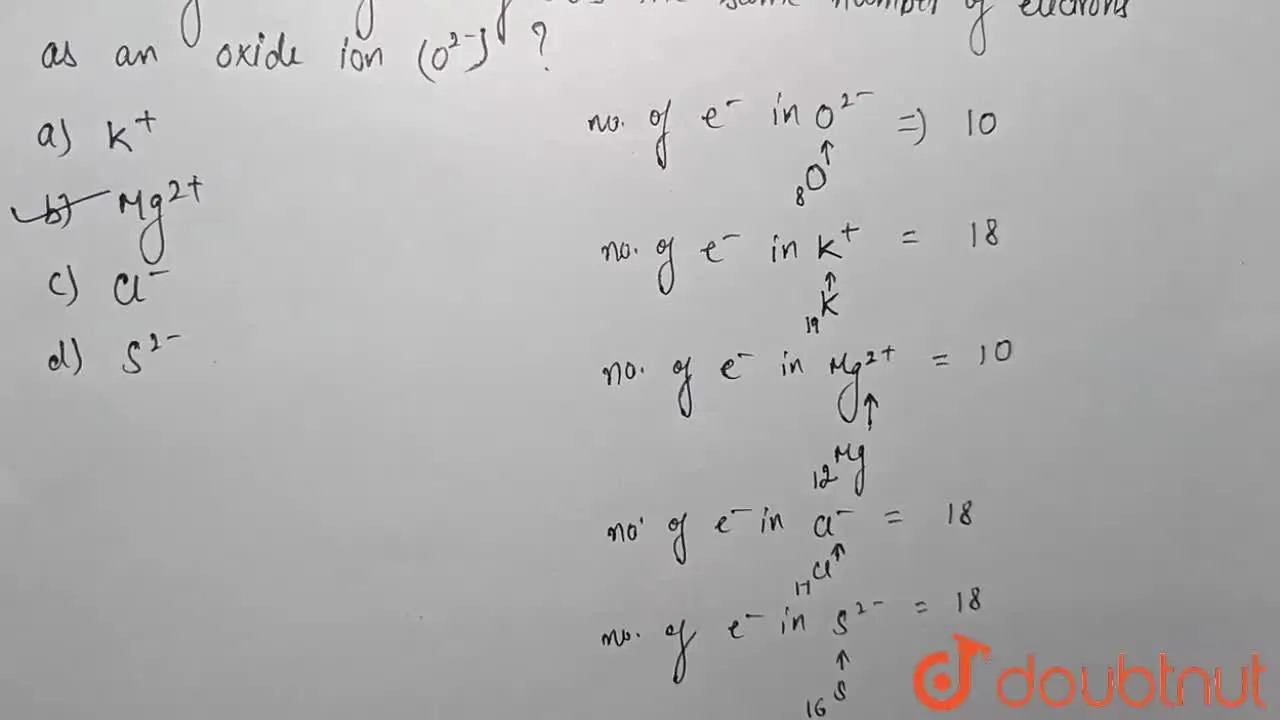 the same number of electrons
as an oxide ion (O²⁻) ?
a) K⁺
b) Mg²⁺
c) Cl⁻
d) S²⁻
no. of e⁻ in O²⁻ => 10
↑
₈O
no. of e⁻ in K⁺ = 18
↑
₁₉K
no. of e⁻ in Mg²⁺ = 10
↑
₁₂Mg
no. of e⁻ in Cl⁻ = 18
↑
₁₇Cl
no. of e⁻ in S²⁻ = 18
↑
₁₆S
doubtnut